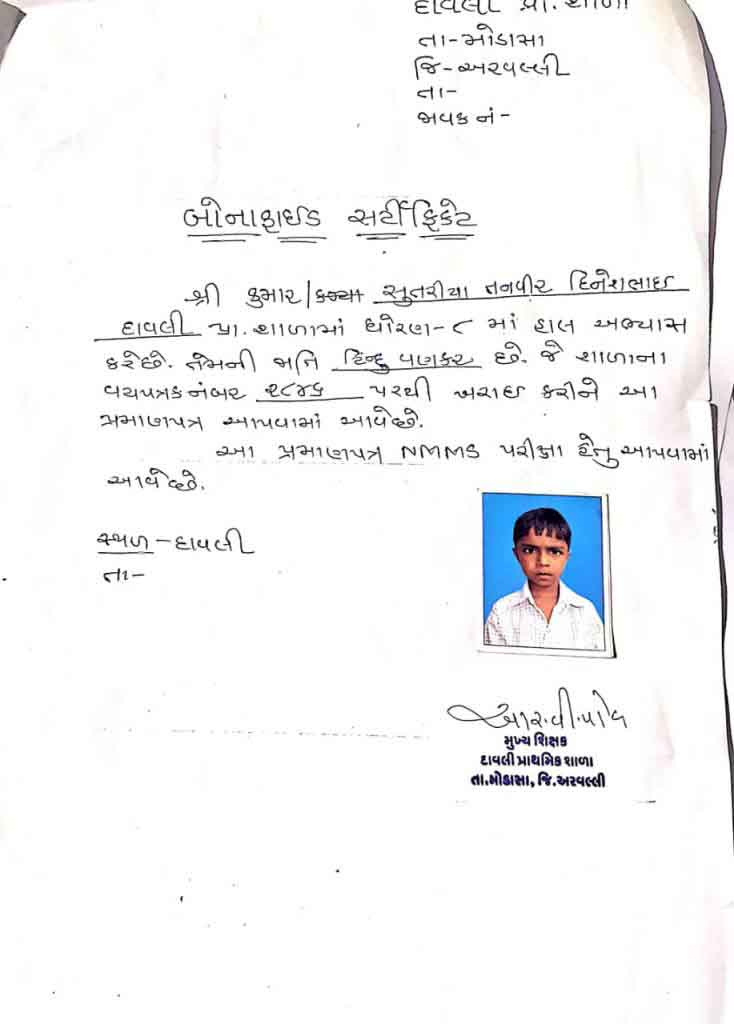 દાવલી પ્રા. શાળા
તા-મોડાસા
જિ-અરવલ્લી
તા-
જાવક નં-
બોનાફાઈડ સર્ટીફિકેટ
શ્રી કુમાર/કન્યા સુતરીયા તનવીર દિનેશભાઇ
દાવલી પ્રા. શાળામાં ધોરણ-૮ માં હાલ અભ્યાસ
કરેછે. તેમની જાતિ હિન્દુ વણકર છે. જે શાળાના
વયપત્રક નંબર ૨૮૪૬ પરથી ખરાઇ કરીને આ
પ્રમાણપત્ર આપવામાં આવેછે.
આ પ્રમાણપત્ર NMMS પરીક્ષા હેતુ આપવામાં
આવેછે.
સ્થળ - દાવલી
તા-
મુખ્ય શિક્ષક
દાવલી પ્રાથમિક શાળા
તા.મોડાસા, જિ.અરવલ્લી